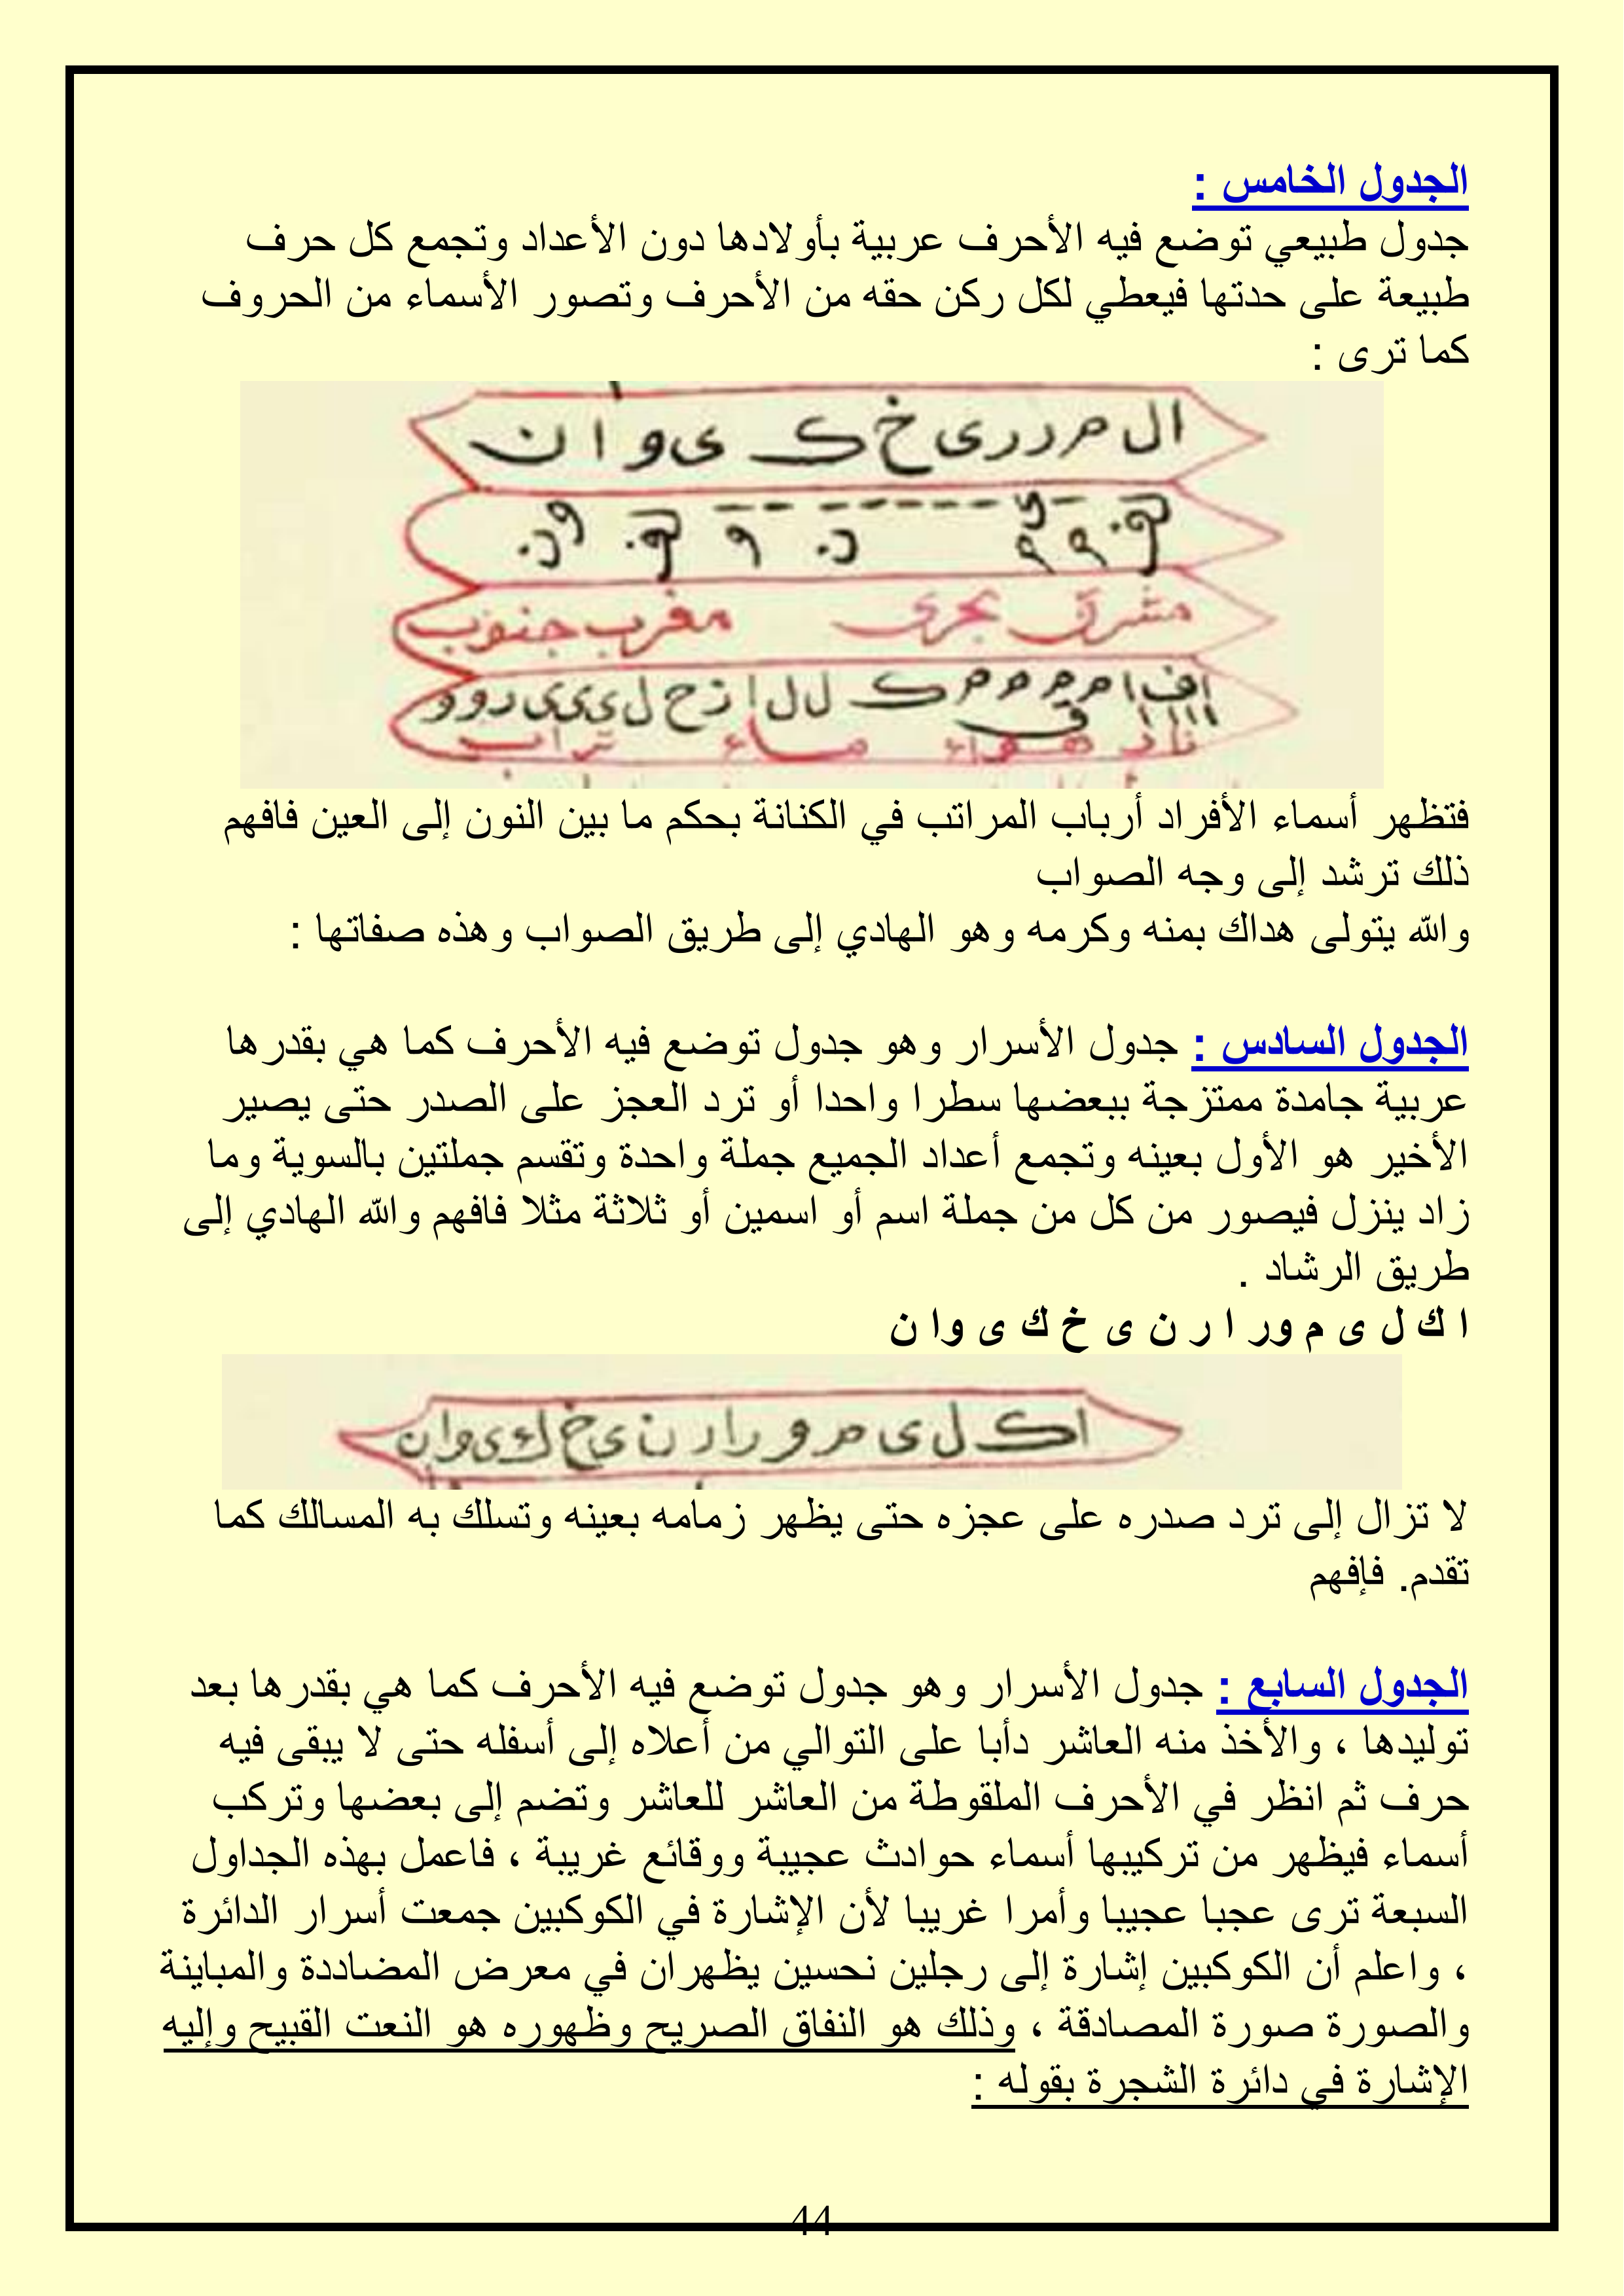 الجدول الخامس :
جدول طبيعي توضع فيه الأحرف عربية بأولادها دون الأعداد وتجمع كل حرف
طبيعة على حدتها فيعطي لكل ركن حقه من الأحرف وتصور الأسماء من الحروف
كما ترى :
ال م ر د ر ى خ ك ى و ا ن
مشرق بحرى مغرب جنوب
نار هواء ماء تراب
فتظهر أسماء الأفراد أرباب المراتب في الكنانة بحكم ما بين النون إلى العين فافهم
ذلك ترشد إلى وجه الصواب
والله يتولى هداك بمنه وكرمه وهو الهادي إلى طريق الصواب وهذه صفاتها :
الجدول السادس : جدول الأسرار وهو جدول توضع فيه الأحرف كما هي بقدرها
عربية جامدة ممتزجة ببعضها سطرا واحدا أو ترد العجز على الصدر حتى يصير
الأخير هو الأول بعينه وتجمع أعداد الجميع جملة واحدة وتقسم جملتين بالسوية وما
زاد ينزل فيصور من كل من جملة اسم أو اسمين أو ثلاثة مثلا فافهم والله الهادي إلى
طريق الرشاد .
ا ك ل ى م ور ا ر ن ى خ ك ى وا ن
ا ك ل ى م و ر ا ر ن ى خ ك ى و ا ن
لا تزال إلى ترد صدره على عجزه حتى يظهر زمامه بعينه وتسلك به المسالك كما
تقدم. فإفهم
الجدول السابع : جدول الأسرار وهو جدول توضع فيه الأحرف كما هي بقدرها بعد
توليدها ، والأخذ منه العاشر دأبا على التوالي من أعلاه إلى أسفله حتى لا يبقى فيه
حرف ثم انظر في الأحرف الملقوطة من العاشر للعاشر وتضم إلى بعضها وتركب
أسماء فيظهر من تركيبها أسماء حوادث عجيبة ووقائع غريبة ، فاعمل بهذه الجداول
السبعة ترى عجبا عجيبا وأمرا غريبا لأن الإشارة في الكوكبين جمعت أسرار الدائرة
، واعلم أن الكوكبين إشارة إلى رجلين نحسين يظهران في معرض المضاددة والمباينة
والصورة صورة المصادقة ، وذلك هو النفاق الصريح وظهوره هو النعت القبيح وإليه
الإشارة في دائرة الشجرة بقوله :
44